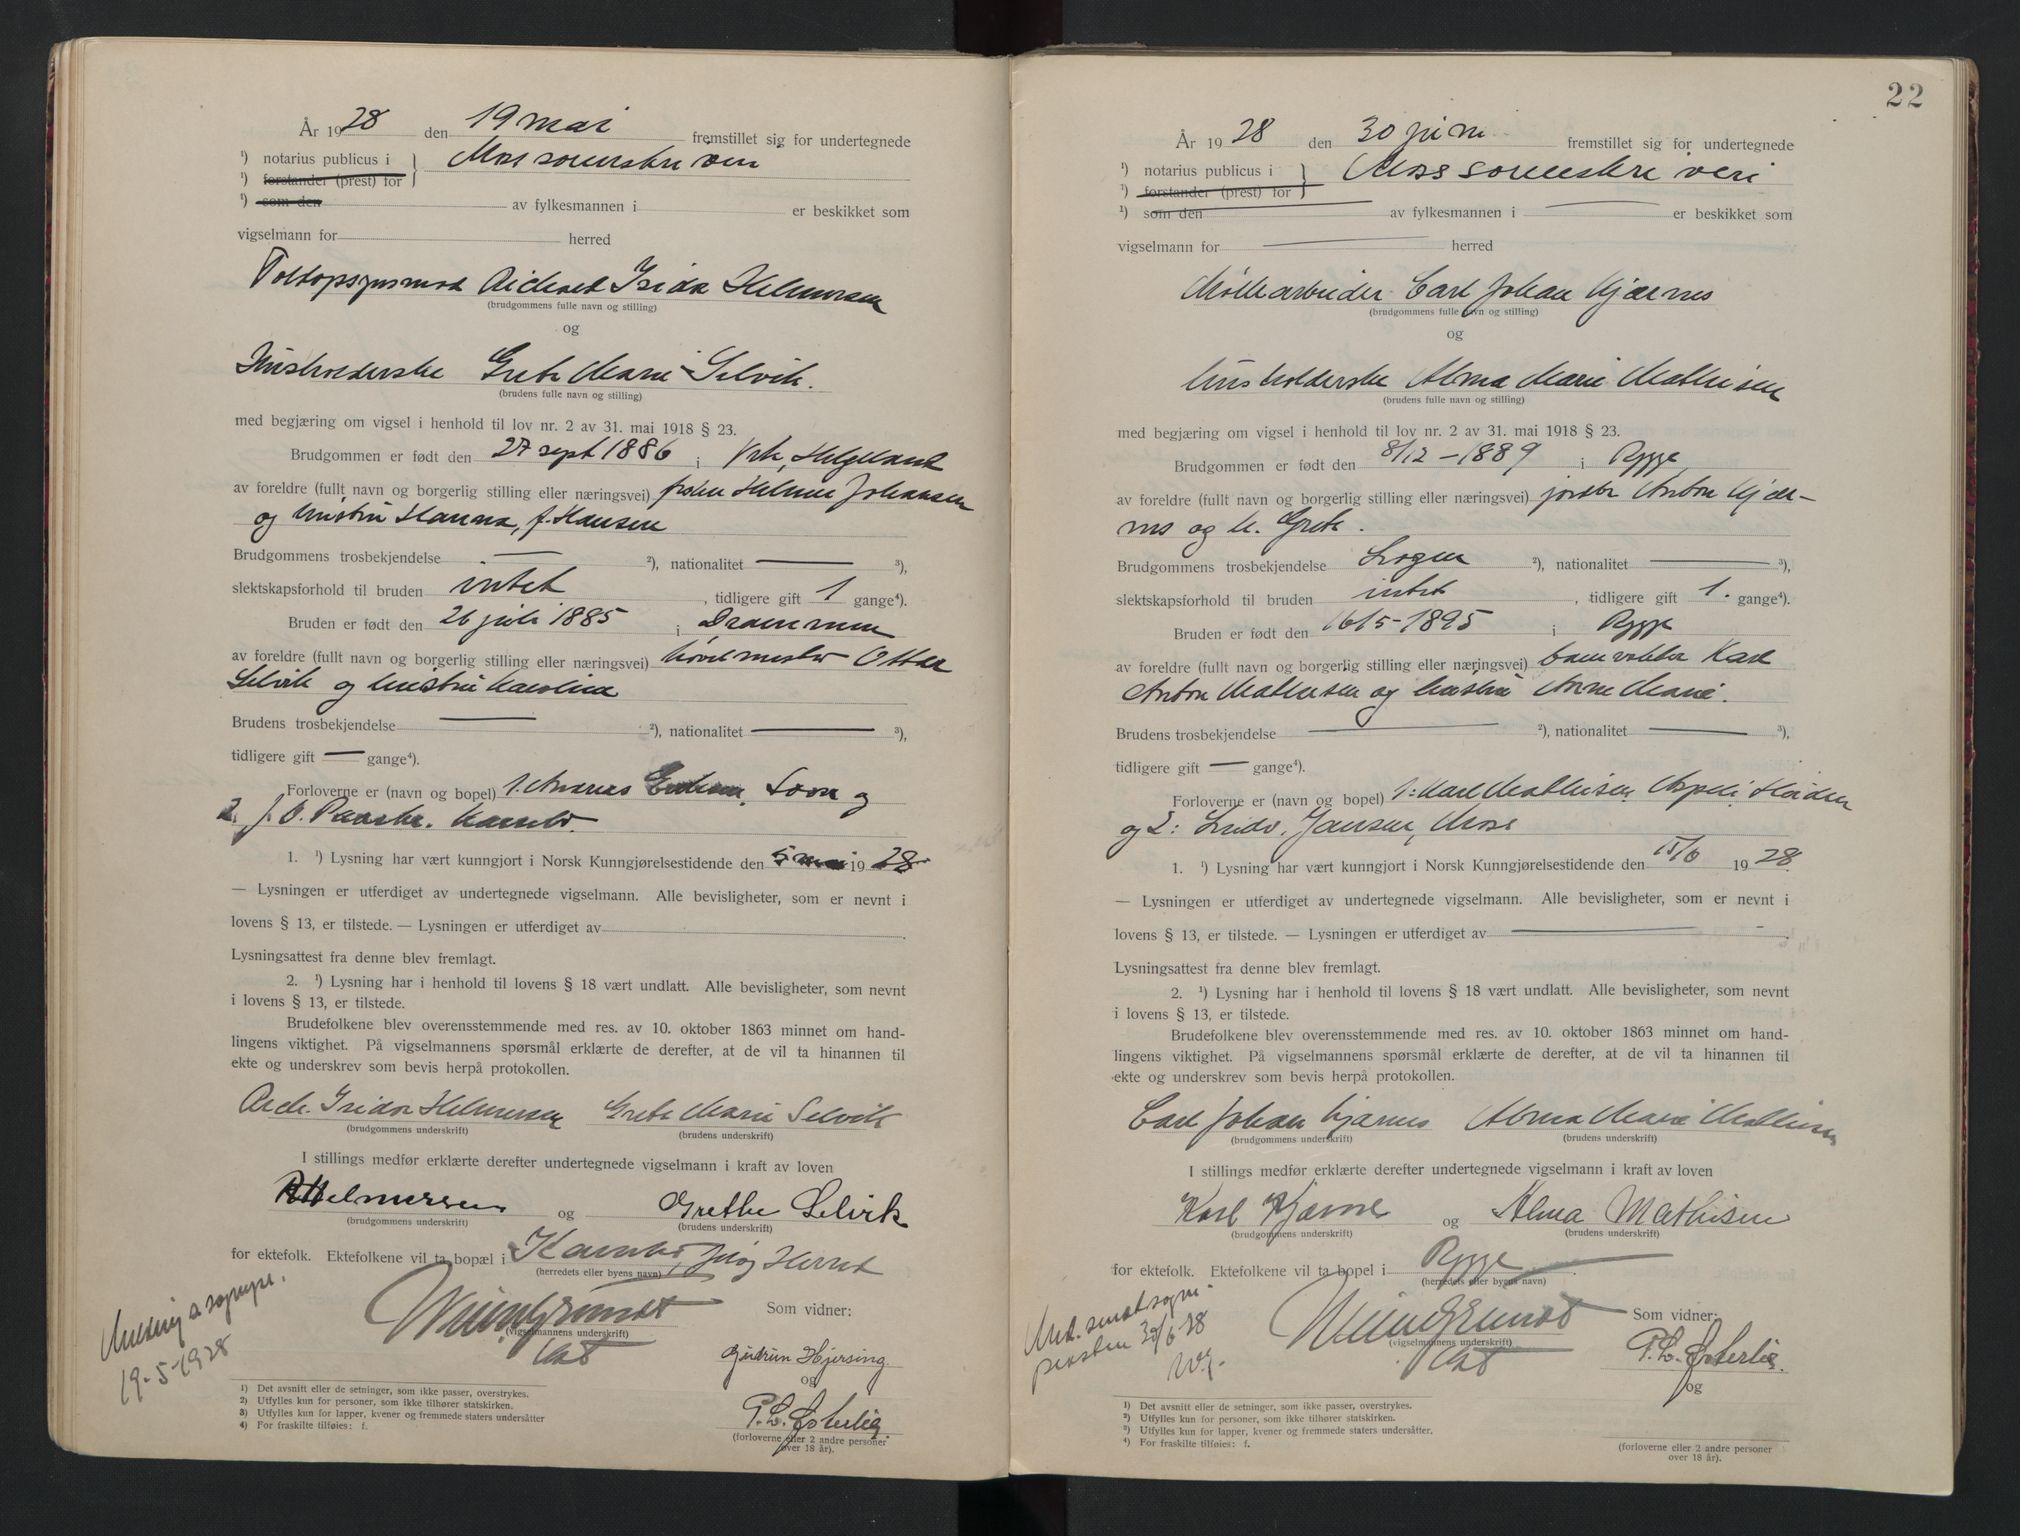 År 1928 den 19 mai fremstillet sig for undertegnede
¹) notarius publicus i } Moss sorenskriveri
¹) forstander (prest) for
¹) som den av fylkesmannen i er beskikket som
vigselmann for herred
Toldopsynsmand Isidor Helmersen
(brudgommens fulle navn og stilling)
og
Husholderske Grete Marie Selvik.
(brudens fulle navn og stilling)
med begjæring om vigsel i henhold til lov nr. 2 av 31. mai 1918 § 23.
Brudgommen er født den 27 sept 1886 i Helgeland
av foreldre (fullt navn og borgerlig stilling eller næringsvei) fisker Helmer Johansen
og hustru Hanna, f. Hansen
Brudgommens trosbekjendelse — ²), nationalitet — ³),
slektskapsforhold til bruden intet, tidligere gift 1 gange⁴).
Bruden er født den 26 juli 1885 i Drammen
av foreldre (fullt navn og borgerlig stilling eller næringsvei) Ottar
Selvik og hustru Karoline
Brudens trosbekjendelse — ²), nationalitet — ³),
tidligere gift — gange⁴).
Forloverne er (navn og bopel) 1. Soon og
2. J. O. Kambo.
1. ¹) Lysning har vært kunngjort i Norsk Kunngjørelsestidende den 5 mai 1928
— Lysningen er utferdiget av undertegnede vigselmann. Alle bevisligheter, som er nevnt i
lovens § 13, er tilstede. — Lysningen er utferdiget av
Lysningsattest fra denne blev fremlagt.
2. ¹) Lysning har i henhold til lovens § 18 vært undlatt. Alle bevisligheter, som nevnt
i lovens § 13, er tilstede.
Brudefolkene blev overensstemmende med res. av 10. oktober 1863 minnet om hand-
lingens viktighet. På vigselmannens spørsmål erklærte de derefter, at de vil ta hinannen til
ekte og underskrev som bevis herpå protokollen.
Isidor Helmersen Grete Marie Selvik
(brudgommens underskrift) (brudens underskrift)
I stillings medfør erklærte derefter undertegnede vigselmann i kraft av loven
Helmersen og Grethe Selvik
(brudgommens underskrift) (brudens underskrift)
for ektefolk. Ektefolkene vil ta bopæl i Kambo, Herred
(herredets eller byens navn)
Melding a sogнepr.
19-5-1928
Wiin Grundt
(vigselmannens underskrift)
Som vidner:
Gudrun Hjersing.
og
P. L. Østerlie.
(forloverne eller 2 andre personer
over 18 år).
1) Det avsnitt eller de setninger, som ikke passer, overstrykes.
2) Utfylles kun for personer, som ikke tilhører statskirken.
3) Utfylles kun for lapper, kvener og fremmede staters undersåtter
4) For fraskilte tilføies: f.
22
År 1928 den 30 juni fremstillet sig for undertegnede
¹) notarius publicus i } Moss sorenskriveri
¹) forstander (prest) for
¹) som den av fylkesmannen i er beskikket som
vigselmann for herred
Møllearbeider Carl Johan Kjærnes
(brudgommens fulle navn og stilling)
og
Husholderske Alma Marie Mathisen
(brudens fulle navn og stilling)
med begjæring om vigsel i henhold til lov nr. 2 av 31. mai 1918 § 23.
Brudgommen er født den 8/12-1889 i Rygge
av foreldre (fullt navn og borgerlig stilling eller næringsvei) Anton Kjær-
nes og h. Grete.
Brudgommens trosbekjendelse ²), nationalitet — ³),
slektskapsforhold til bruden intet, tidligere gift 1. gange⁴).
Bruden er født den 16/5-1895 i Rygge
av foreldre (fullt navn og borgerlig stilling eller næringsvei) banevokter Karl
Anton Mathisen og hustru Anne Marie.
Brudens trosbekjendelse — ²), nationalitet — ³),
tidligere gift — gange⁴).
Forloverne er (navn og bopel) 1: Karl Mathisen,
og 2: Ludv. Jansen, Moss
1. ¹) Lysning har vært kunngjort i Norsk Kunngjørelsestidende den 15/6 1928.
— Lysningen er utferdiget av undertegnede vigselmann. Alle bevisligheter, som er nevnt i
lovens § 13, er tilstede. — Lysningen er utferdiget av —
Lysningsattest fra denne blev fremlagt.
2. ¹) Lysning har i henhold til lovens § 18 vært undlatt. Alle bevisligheter, som nevnt
i lovens § 13, er tilstede.
Brudefolkene blev overensstemmende med res. av 10. oktober 1863 minnet om hand-
lingens viktighet. På vigselmannens spørsmål erklærte de derefter, at de vil ta hinannen til
ekte og underskrev som bevis herpå protokollen.
Carl Johan Kjærnes Alma Marie Mathisen
(brudgommens underskrift) (brudens underskrift)
I stillings medfør erklærte derefter undertegnede vigselmann i kraft av loven
Karl Kjærnes og Alma Mathisen
(brudgommens underskrift) (brudens underskrift)
for ektefolk. Ektefolkene vil ta bopel i Rygge
(herredets eller byens navn)
Med. sendt sogne-
presten 30/6-28
Wiin Grundt
(vigselmannens underskrift)
Som vidner:
P. L. Østerlie.
og
(forloverne eller 2 andre personer
over 18 år).
¹) Det avsnitt eller de setninger, som ikke passer, overstrykes.
²) Utfylles kun for personer, som ikke tilhører statskirken.
³) Utfylles kun for lapper, kvener og fremmede staters undersåtter.
⁴) For fraskilte tilføies: f.